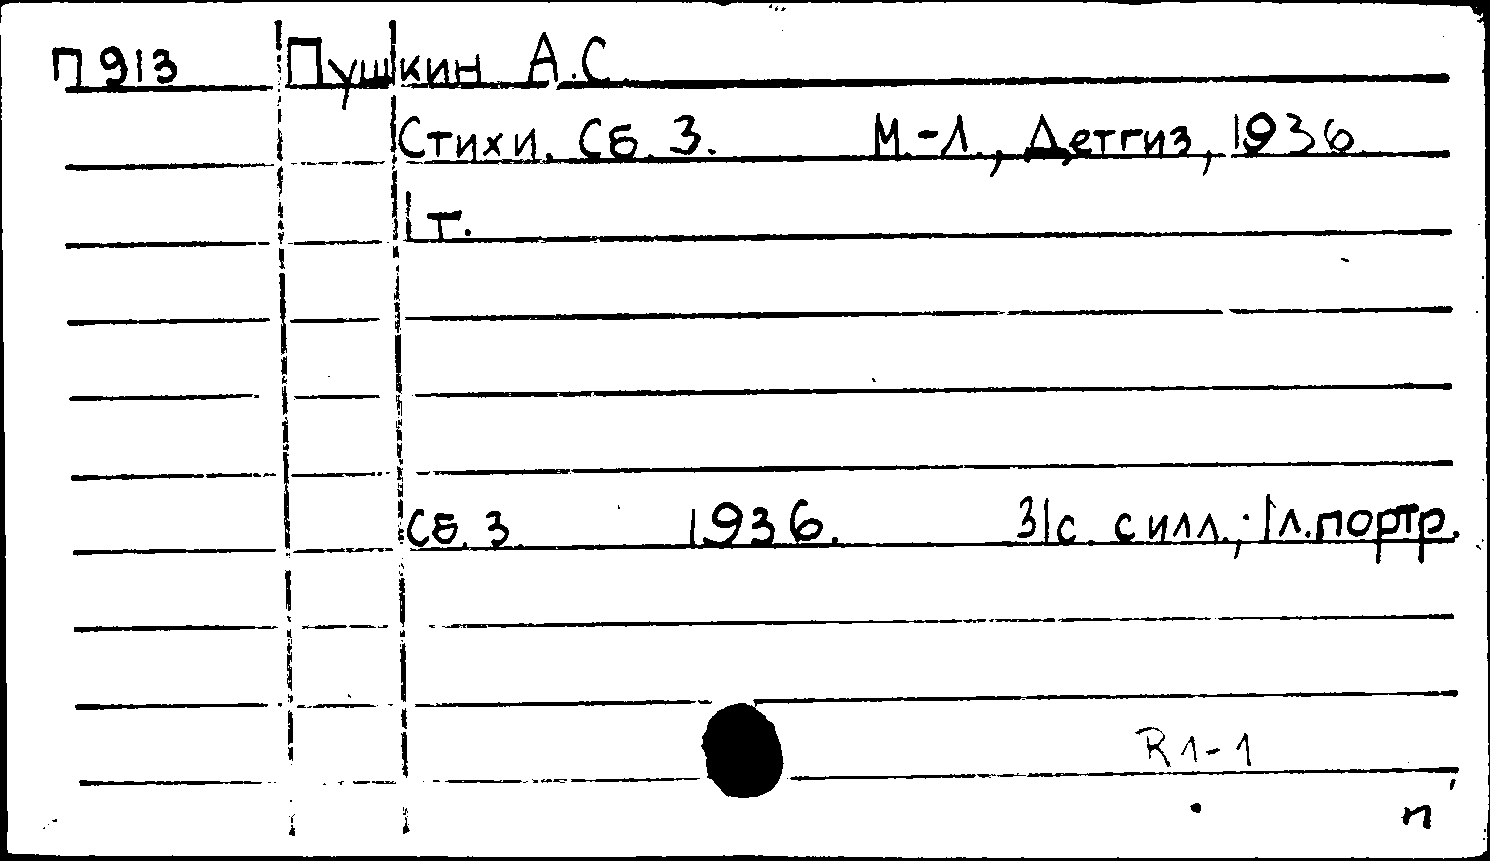 П913 Пушкин А.С.
Стихи. Сб. 3. М.-Л., Детгиз, 1936.
1 т.
Сб. 3 1936. 31с. с илл.; 1л. портр.
R 1-1
п